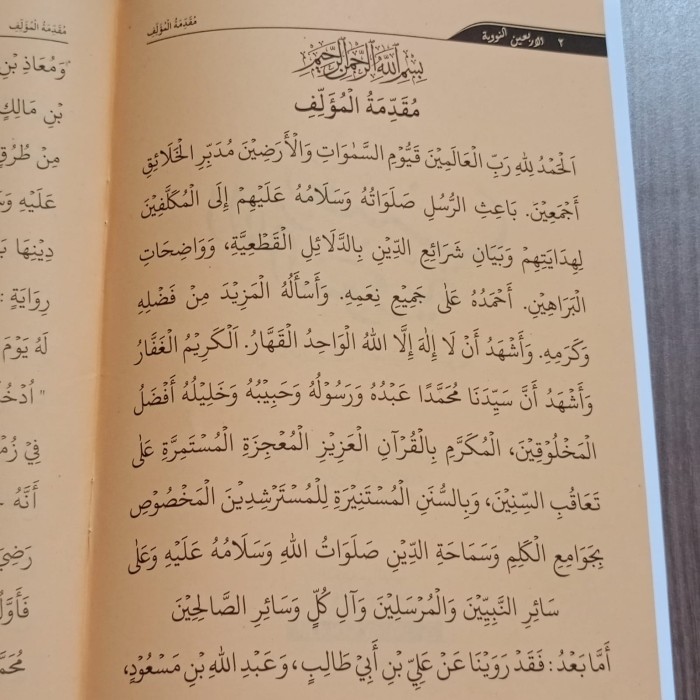 ٢ الاربعين النووية
مُقَدِّمَةُ الْمُؤَلِّفِ
بِسْمِ اللهِ الرَّحْمٰنِ الرَّحِيْمِ
مُقَدِّمَةُ الْمُؤَلِّفِ
اَلْحَمْدُ لِلهِ رَبِّ الْعَالَمِيْنَ قَيُّوْمِ السَّمٰوَاتِ وَالْأَرَضِيْنَ مُدَبِّرِ الْخَلَائِقِ
أَجْمَعِيْنَ. بَاعِثِ الرُّسُلِ صَلَوَاتُهُ وَسَلَامُهُ عَلَيْهِمْ إِلَى الْمُكَلَّفِيْنَ
لِهِدَايَتِهِمْ وَبَيَانِ شَرَائِعِ الدِّيْنِ بِالدَّلَائِلِ الْقَطْعِيَّةِ، وَوَاضِحَاتِ
الْبَرَاهِيْنِ. أَحْمَدُهُ عَلَى جَمِيْعِ نِعَمِهِ. وَأَسْأَلُهُ الْمَزِيْدَ مِنْ فَضْلِهِ
وَكَرَمِهِ. وَأَشْهَدُ أَنْ لَا إِلٰهَ إِلَّا اللهُ الْوَاحِدُ الْقَهَّارُ. اَلْكَرِيْمُ الْغَفَّارُ
وَأَشْهَدُ أَنَّ سَيِّدَنَا مُحَمَّدًا عَبْدُهُ وَرَسُوْلُهُ وَحَبِيْبُهُ وَخَلِيْلُهُ أَفْضَلُ
الْمَخْلُوْقِيْنَ، الْمُكَرَّمِ بِالْقُرْآنِ الْعَزِيْزِ الْمُعْجِزَةِ الْمُسْتَمِرَّةِ عَلَى
تَعَاقُبِ السِّنِيْنَ، وَبِالسُّنَنِ الْمُسْتَنِيْرَةِ لِلْمُسْتَرْشِدِيْنَ الْمَخْصُوْصِ
بِجَوَامِعِ الْكَلِمِ وَسَمَاحَةِ الدِّيْنِ صَلَوَاتُ اللهِ وَسَلَامُهُ عَلَيْهِ وَعَلَى
سَائِرِ النَّبِيِّيْنَ وَالْمُرْسَلِيْنَ وَآلِ كُلٍّ وَسَائِرِ الصَّالِحِيْنَ
أَمَّا بَعْدُ: فَقَدْ رَوَيْنَا عَنْ عَلِيِّ بْنِ أَبِيْ طَالِبٍ، وَعَبْدِ اللهِ بْنِ مَسْعُوْدٍ،
مُقَدِّمَةُ الْمُؤَلِّفِ
وَمُعَاذِ بْنِ
بْنِ مَالِكٍ
مِنْ طُرُقٍ
عَلَيْهِ
دِيْنِهَا
رِوَايَةٍ :
لَهُ يَوْمَ
فِيْ
أَنَّهُ